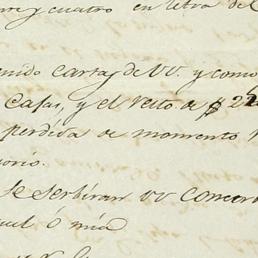 re y cuatro en letra de
enido Cartas de VV. y como
Casas, y el resto de $ 22
perdida de momento
orio.
Se serbiran VV concur
cual O mia